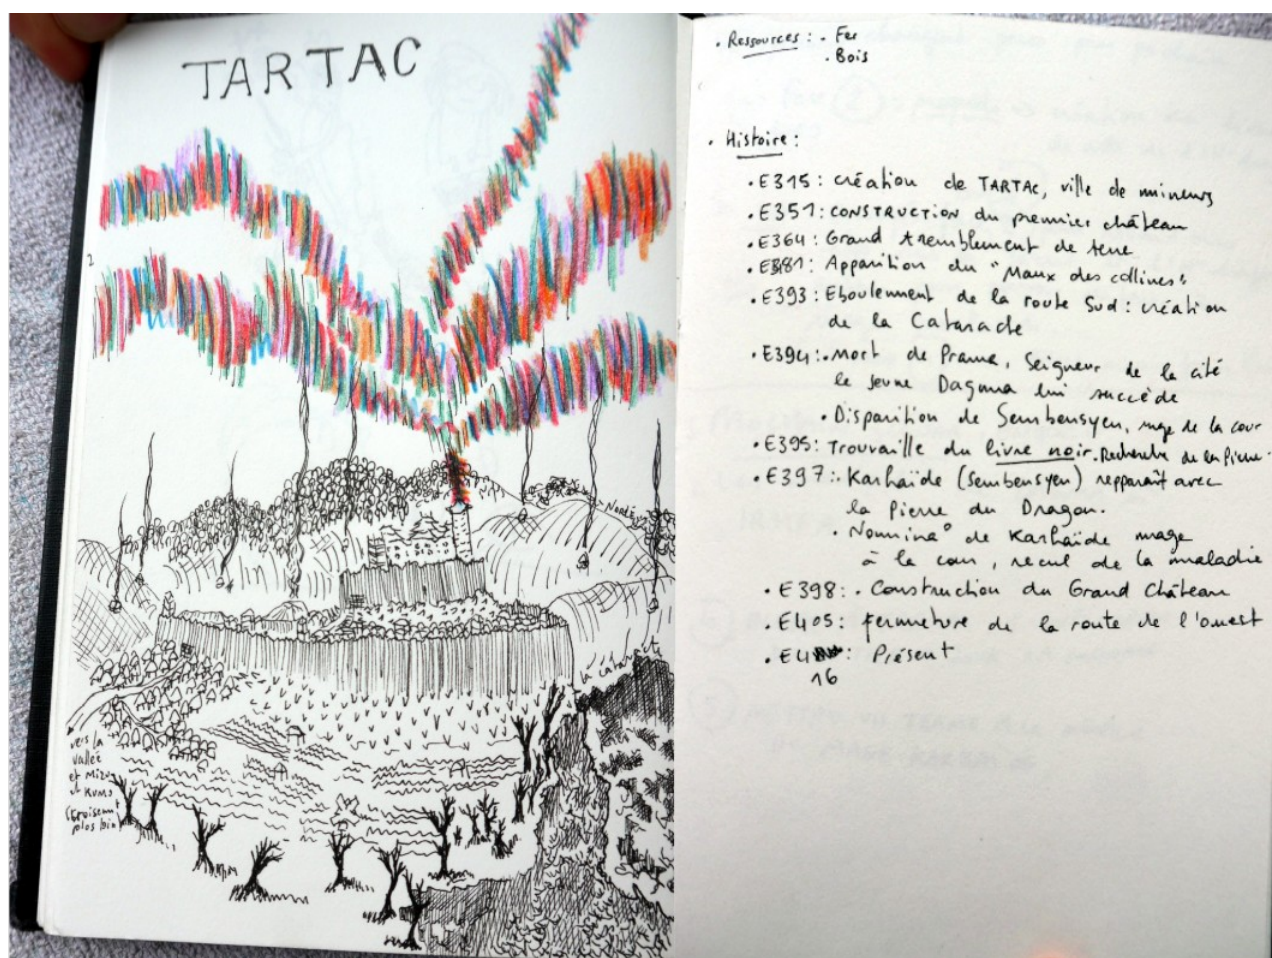 TARTAC
2
Nord
la Cataracte
vers la
vallée
et
et KUMO
plus loin
• Ressources : • Fer
• Bois
• Histoire :
• E315 : création de TARTAC, ville de mineurs
• E351 : CONSTRUCTION du premier château
• E364 : Grand tremblement de terre
• E381 : Apparition du "Maux des collines"
• E393 : Eboulement de la route Sud : création
de la Cataracte
• E394 : • Mort de Prama, Seigneur de la cité
le jeune Dagma lui succède
• Disparition de Sembensyen, mage de la cour
• E395 : Trouvaille du livre noir. Recherche de la Pierre.
• E397 : • Karhaïde (Sembensyen) repparaît avec
la Pierre du Dragon.
• Nomina° de Karhaïde mage
à la cour, recul de la maladie
• E398 : • Construction du Grand Château
• E405 : fermeture de la route de l'ouest
• E4 : Présent
16